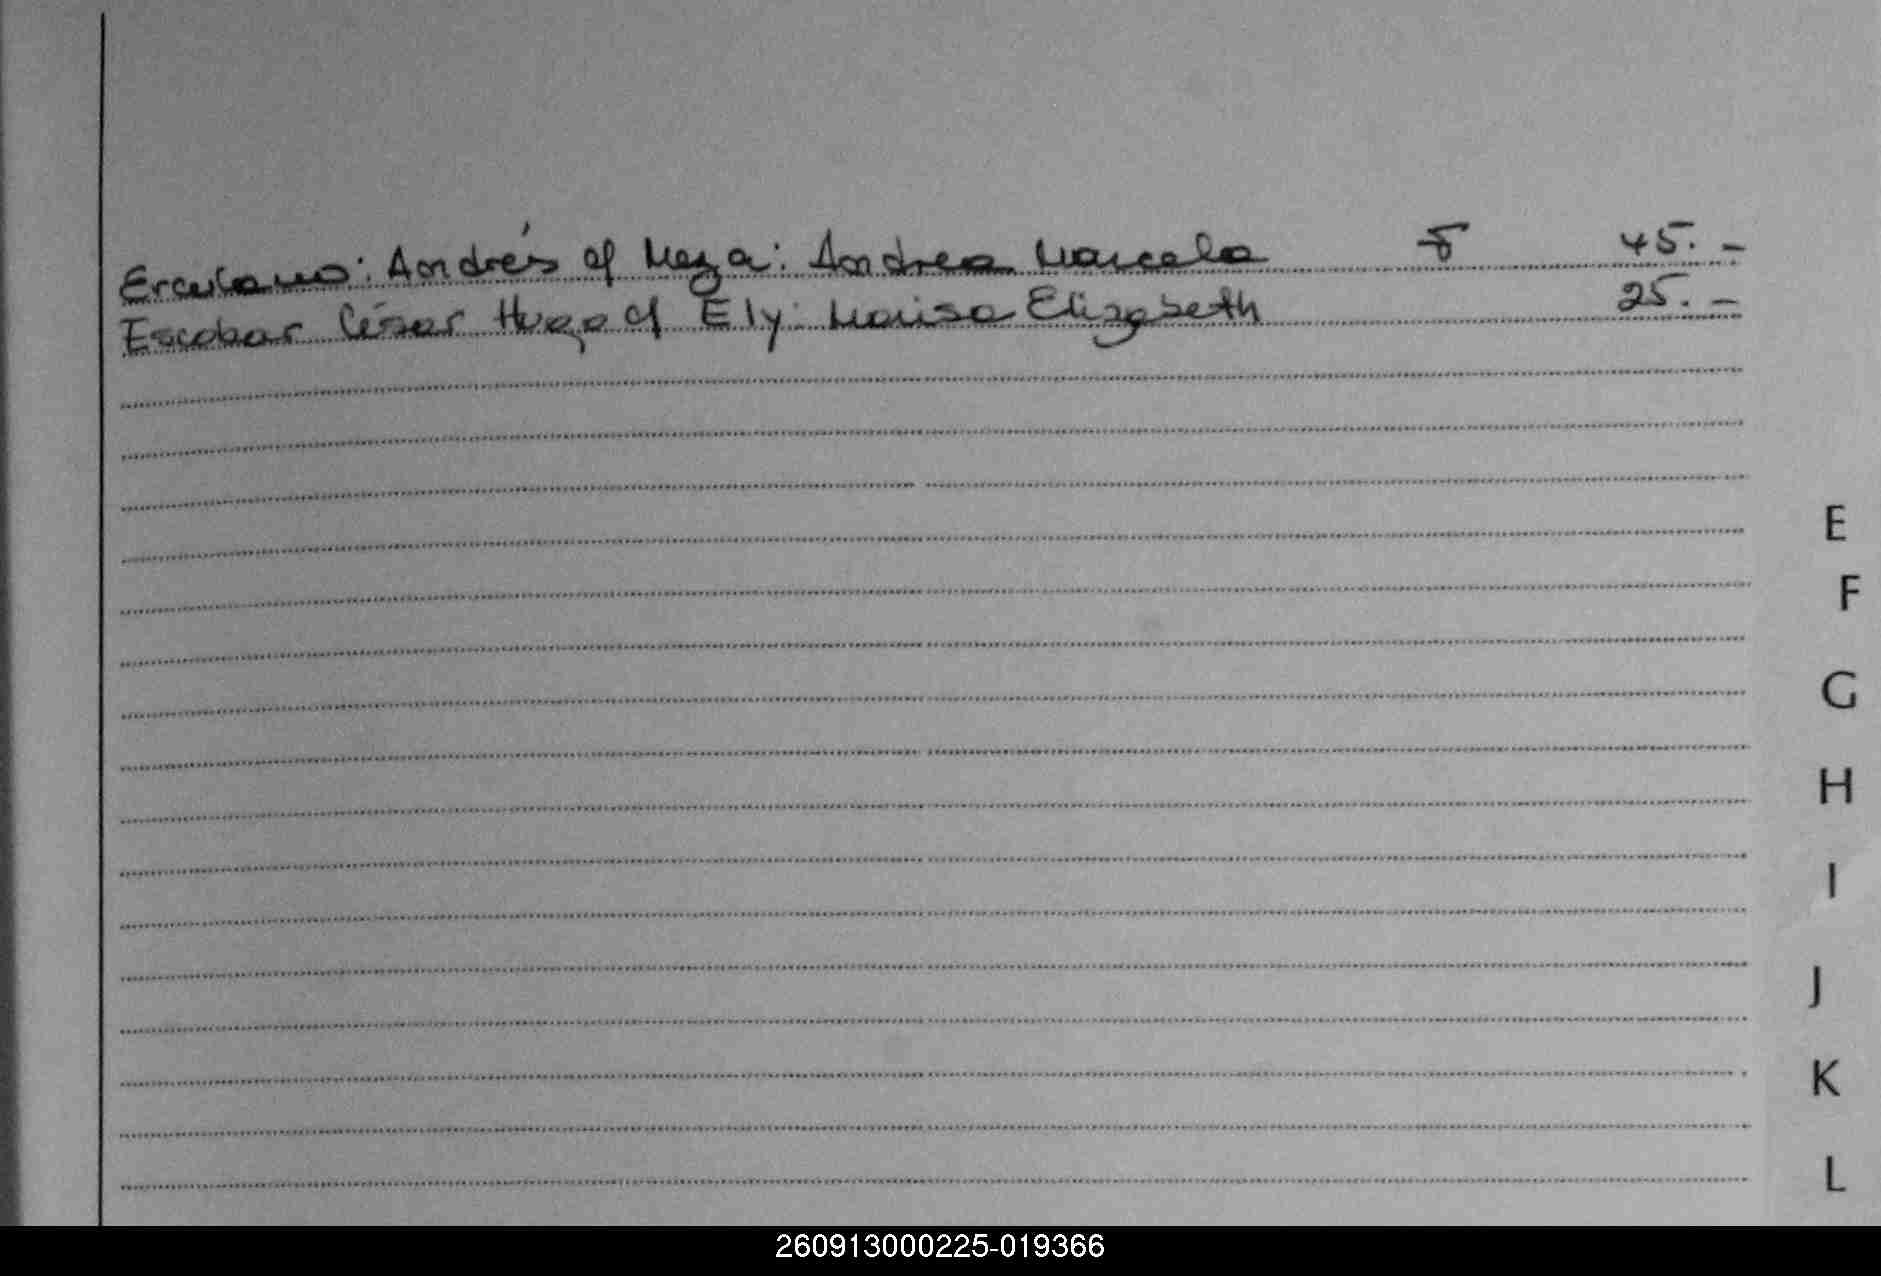 Erculano: Andrés cf Meza: Andrea Marcela 45.-
Escobar César Hugo cf Ely: Marisa Elizabeth 25.-
E
F
G
H
I
J
K
L
260913000225-019366